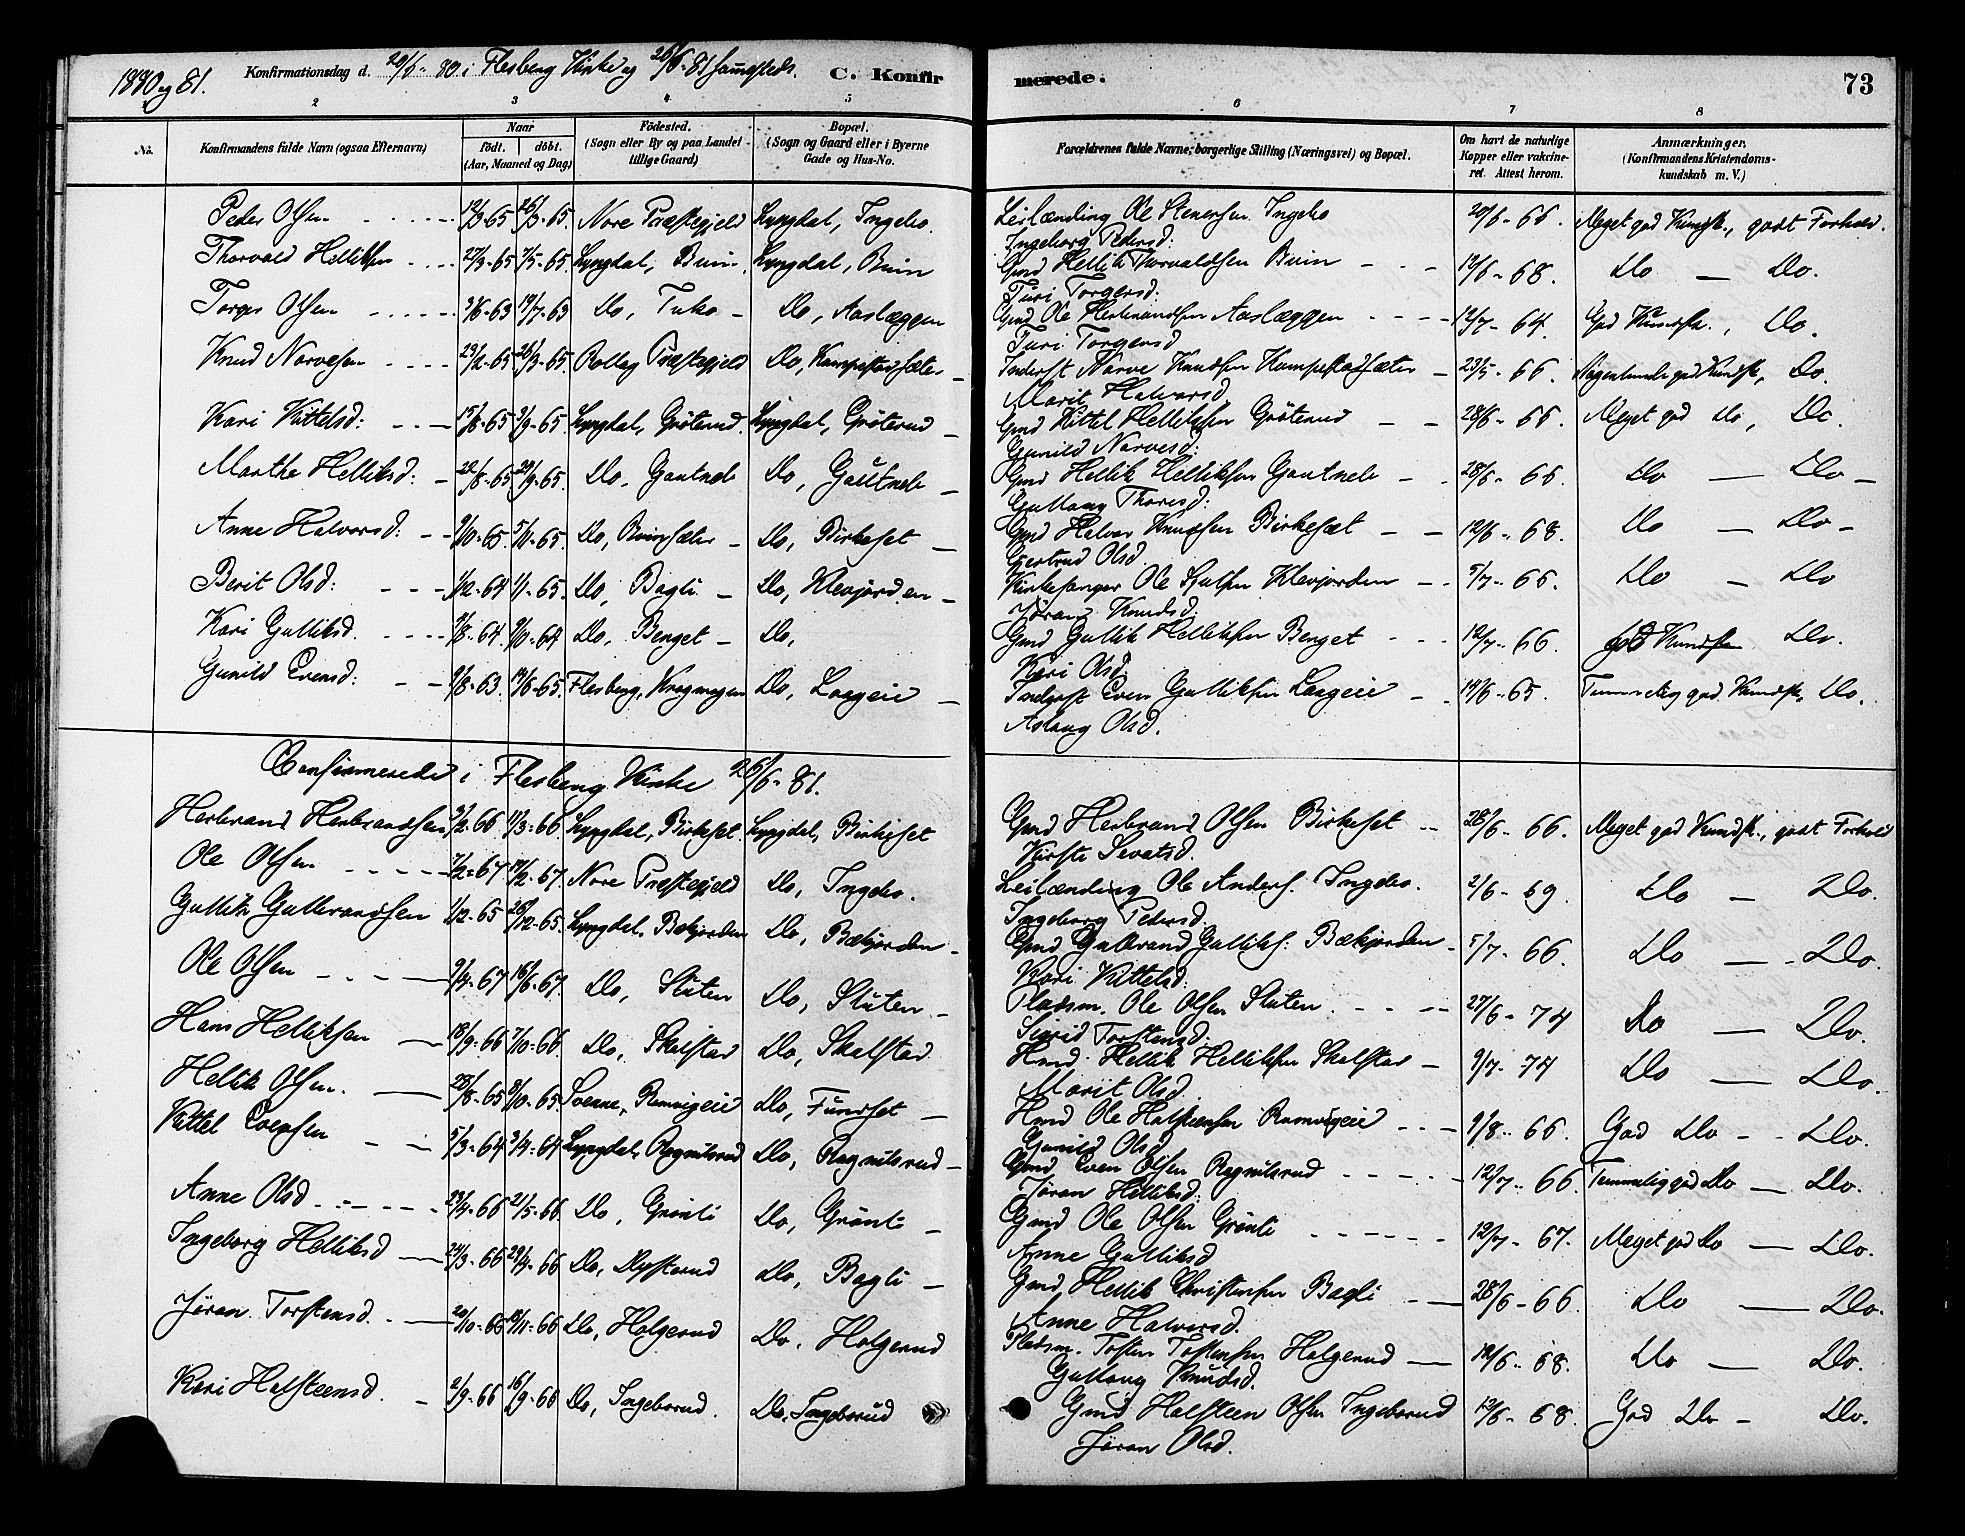 1880 og 81. Konfirmationsdag d. 20/6-80 i Flesberg Kirke og 26/6-81 sammesteds. C. Konfirmerede. 73
2 3 4 5 6 7 8
No. Konfirmandens fulde Navn (ogsaa Efternavn) Naar født. døbt. (Aar, Maaned og Dag) Fødested. (Sogn eller By og paa Landet tillige Gaard) Bopæl. (Sogn og Gaard eller i Byerne Gade og Hus-No. Forældrenes fulde Navne, borgerlige Stilling (Næringsvei) og Bopæl. Om havt de naturlige Kopper eller vakcineret. Attest herom. Anmærkninger. (Konfirmandens Kristendomskundskab m. V.)
Peder Olsen 12/3-65 26/3-65 Nore Præstegjeld Lyngdal, Ingebo. Leilænding Ole Stenersen Ingebo 20/6-66 Meget god Kundsk., godt Forhold.
Ingeborg Pedersd:
Thorvald Helliksen 27/3-65 7/5-65 Lyngdal, Buin Lyngdal, Buin Gmd Hellik Thorvaldsen Buin 12/6-68. Do — Do.
Turi Torgersd:
Torger Olsen 3/6-63 19/7-63 Do, Tuko Do, Aaslæggen Gmd Ole Herbrandsen Aaslæggen 12/7-64. God Kundsk., Do.
Turi Torgersd
Knud Narvesen 23/2-65 26/3-65 Rollag Præstegjeld Do, Kampestadsæter Inderst Narve Knudsen Kampestadsæter 23/5-66. Nogenlunde god Kundsk, Do.
Marit Halvorsd
Kari Kittelsd: 15/8-65 3/9-65 Lyngdal, Grøterud. Lyngdal, Grøterud Gmd Kittel Helliksen Grøterud 28/6-66 Meget god Do, Do
Gunild Narvesd:
Marthe Helliksd: 22/8-65 24/9-65. Do, Gautneb Do, Gautneb Gmd Hellik Helliksen Gautneb 28/6-66 Do — Do
Gullaug Thoresd:
Anne Halvorsd. 9/10-65 5/11-65. Do, Buinsæter Do, Birkeset Gmd Halvor Knudsen Birkesæt 12/6-68. Do — Do
Gjertrud Olsd.
Berit Olsd: 1/12-64 1/1-65. Do, Bagli Do, Klevjorden Kirkesanger Ole Klevjorden 5/7-66. Do — Do
Jøran Knudsd:
Kari Gulliksd. 7/8-64. 9/10-64 Do, Benget Do, Gmd Gullik Helliksen Benget 12/7-66. god Kundsk Do.
Kari Olsd.
Gunild Evensd: 9/8-63. 14/6-65. Flesberg, Do, Laageie Inderst Even Gulliksen Laageie 14/6-65. Temmelig god Kundsk. Do.
Aslaug Olsd.
Confirmerede i Flesberg Kirke 26/6-81.
Herbrand Herbrandsen 3/2-66 11/3-66 Lyngdal, Birkeset. Lyngdal, Birkeset Gmd Herbrand Olsen Birkeset 28/6-66. Meget god Kundsk., godt Forhold
Kirsti Sevatsd.
Ole Olsen 7/2-67 17/2-67. Nore Præstegjeld Do, Ingebo. Leilænding Ole Anders. Ingebo. 2/6-69 Do — Do.
Ingeborg Pedersd.
Gullik Gulbrandsen 1/12-65 26/12-65. Lyngdal, Bækjorden Do, Bækjorden Gmd Gulbrand Gulliks: Bækjorden 5/7-66. Do — Do.
Kari Kittelsd:
Ole Olsen 9/4-67 16/6-67. Do, Sluten Do, Sluten Pladsm. Ole Olsen Sluten 27/6-74 Do — Do.
Sigrid Torstensd:
Hans Helliksen 18/9-66 7/10-66 Do, Skalstad Do, Skalstad. Hmd. Hellik Helliksen Skalstad 9/7-74 Do — Do.
Marit Olsd.
Hellik Olsen. 28/8-65 8/10-65. Svenne, Ramvigeie Do, Fundset Hmd Ole Halsteensen Ramvigeie 9/8-66. God Do - Do.
Gunild Olsd
Kittel Evensen 5/3-64 3/4-64 Lyngdal, Ragnilsrud Do, Ragnilsrud Gmd Even Olsen Ragnilsrud 12/7-66. Temmelig god Do — Do.
Jøran Helliksd:
Anne Olsd 23/4-66 21/5-66 Do, Grønli Do, Grønli Gmd Ole Olsen Grønli 12/7-67. Meget god Do — Do.
Anne Gulliksd
Ingeborg Helliksd 24/3-66 29/4-66 Do, Mysterud Do, Bagli Gmd, Hellik Christensen Bagli 28/6-66. Do — Do.
Anne Halvorsd.
Jøran Torstensd. 20/10-66 18/11-66 Do, Holgerud Do. Holgerud Pladsm. Tosten Tostensen Holgerud 12/6-68. Do — Do.
Gullaug Knudsd.
Kari Halsteensd. 2/9-66 16/9-66 Do, Ingeborud. Do. Ingeborud Gmd Halsteen Olsen Ingeborud 12/6-68. God Do - Do.
Jøran Olsd.